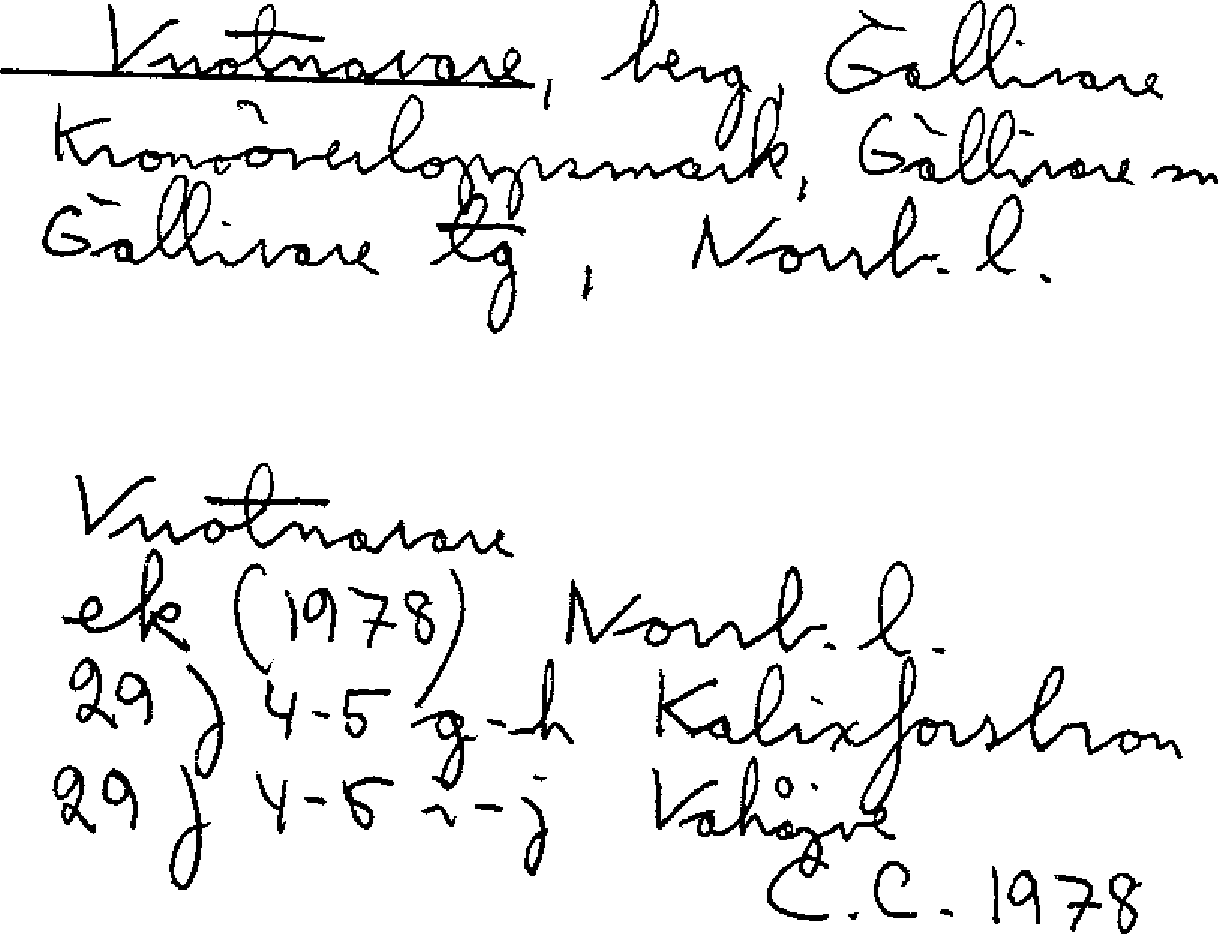 Vuotnavare, berg, Gällivare
Kronoöverloppsmark, Gällivare sn
Gällivare tg, Norrb. l.
Vuotnavare
ek (1978) Norrb. l.
29 J 4-5 g-h Kalixforsbron
29 J 4-5 i-j Vahåive
C.C. 1978